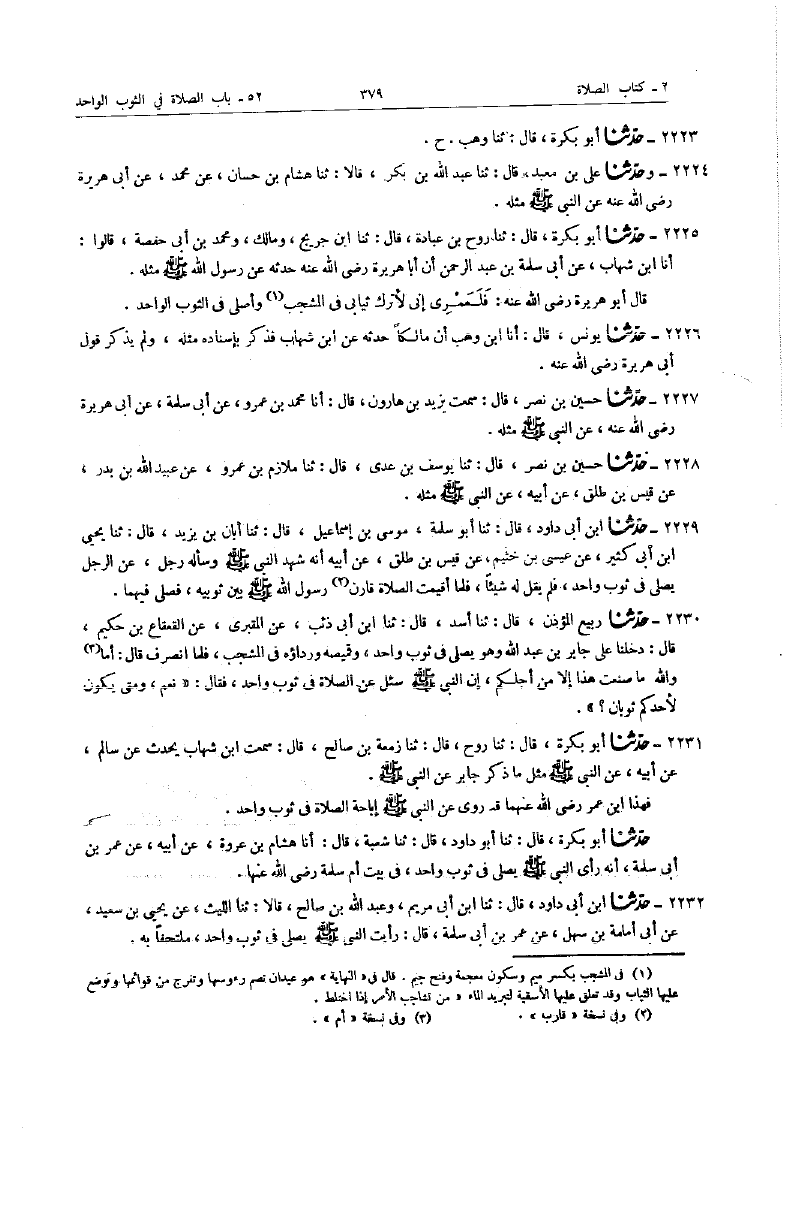 ٢ - كتاب الصلاة ٣٧٩ ٥٢ - باب الصلاة في الثوب الواحد
٢٢٢٣ - حدثنا أبو بكرة ، قال : ثنا وهب . ح .
٢٢٢٤ - وحدثنا على بن معبد ، قال : ثنا عبد الله بن بكر ، قالا : ثنا هشام بن حسان ، عن محمد ، عن أبى هريرة
رضى الله عنه عن النبى ﷺ مثله .
٢٢٢٥ - حدثنا أبو بكرة ، قال : ثنا روح بن عبادة ، قال : ثنا ابن جريج ، ومالك ، ومحمد بن أبى حفصة ، قالوا :
أنا ابن شهاب ، عن أبى سلمة بن عبد الرحمن أن أبا هريرة رضى الله عنه حدثه عن رسول الله ﷺ مثله .
قال أبو هريرة رضى الله عنه : فَلَعَمْرِى إنى لأترك ثيابى فى المشجب(١) وأصلى فى الثوب الواحد .
٢٢٢٦ - حدثنا يونس ، قال : أنا ابن وهب أن مالكاً حدثه عن ابن شهاب فذكر بإسناده مثله ، ولم يذكر قول
أبى هريرة رضى الله عنه .
٢٢٢٧ - حدثنا حسين بن نصر ، قال : سمعت يزيد بن هارون ، قال : أنا محمد بن عمرو ، عن أبى سلمة ، عن أبى هريرة
رضى الله عنه ، عن النبى ﷺ مثله .
٢٢٢٨ - حدثنا حسين بن نصر ، قال : ثنا يوسف بن عدى ، قال : ثنا ملازم بن عمرو ، عن عبيد الله بن بدر ،
عن قيس بن طلق ، عن أبيه ، عن النبى ﷺ مثله .
٢٢٢٩ - حدثنا ابن أبى داود ، قال : ثنا أبو سلمة ، موسى بن إسماعيل ، قال : ثنا أبان بن يزيد ، قال : ثنا يحيى
ابن أبى كثير ، عن عيسى بن خثيم ، عن قيس بن طلق ، عن أبيه أنه شهد النبى ﷺ وسأله رجل ، عن الرجل
يصلى فى ثوب واحد ، فلم يقل له شيئاً ، فلما أقيمت الصلاة قارن(٢) رسول الله ﷺ بين ثوبيه ، فصلى فيهما .
٢٢٣٠ - حدثنا ربيع المؤذن ، قال : ثنا أسد ، قال : ثنا ابن أبى ذئب ، عن المقبرى ، عن القعقاع بن حكيم ،
قال : دخلنا على جابر بن عبد الله وهو يصلى فى ثوب واحد ، وقميصه ورداؤه فى المشجب ، فلما انصرف قال : أما(٣)
والله ما صنعت هذا إلا من أجلكم ، إن النبى ﷺ سئل عن الصلاة فى ثوب واحد ، فقال : « نعم ، ومتى يكون
لأحدكم ثوبان ؟ » .
٢٢٣١ - حدثنا أبو بكرة ، قال : ثنا روح ، قال : ثنا زمعة بن صالح ، قال : سمعت ابن شهاب يحدث عن سالم ،
عن أبيه ، عن النبى ﷺ مثل ما ذكر جابر عن النبى ﷺ .
فهذا ابن عمر رضى الله عنهما قد روى عن النبى ﷺ إباحة الصلاة فى ثوب واحد .
حدثنا أبو بكرة ، قال : ثنا أبو داود ، قال : ثنا شعبة ، قال : أنا هشام بن عروة ، عن أبيه ، عن عمر بن
أبى سلمة ، أنه رأى النبى ﷺ يصلى فى ثوب واحد ، فى بيت أم سلمة رضى الله عنها .
٢٢٣٢ - حدثنا ابن أبى داود ، قال : ثنا ابن أبى مريم ، وعبد الله بن صالح ، قالا : ثنا الليث ، عن يحيى بن سعيد ،
عن أبى أمامة بن سهل ، عن عمر بن أبى سلمة ، قال : رأيت النبى ﷺ يصلى فى ثوب واحد ، ملتحفاً به .
(١) فى المشجب بكسر ميم وسكون معجمة وفتح جيم . قال فى « النهاية » هو عيدان تضم رءوسها وتفرج من قوائمها وتوضع
عليها الثياب وقد تعلق عليها الأسقية لتبريد الماء « من تشاجب الأمر إذا اختلط .
(٢) وفى نسخة « قارب » . (٣) وفى نسخة « أم » .